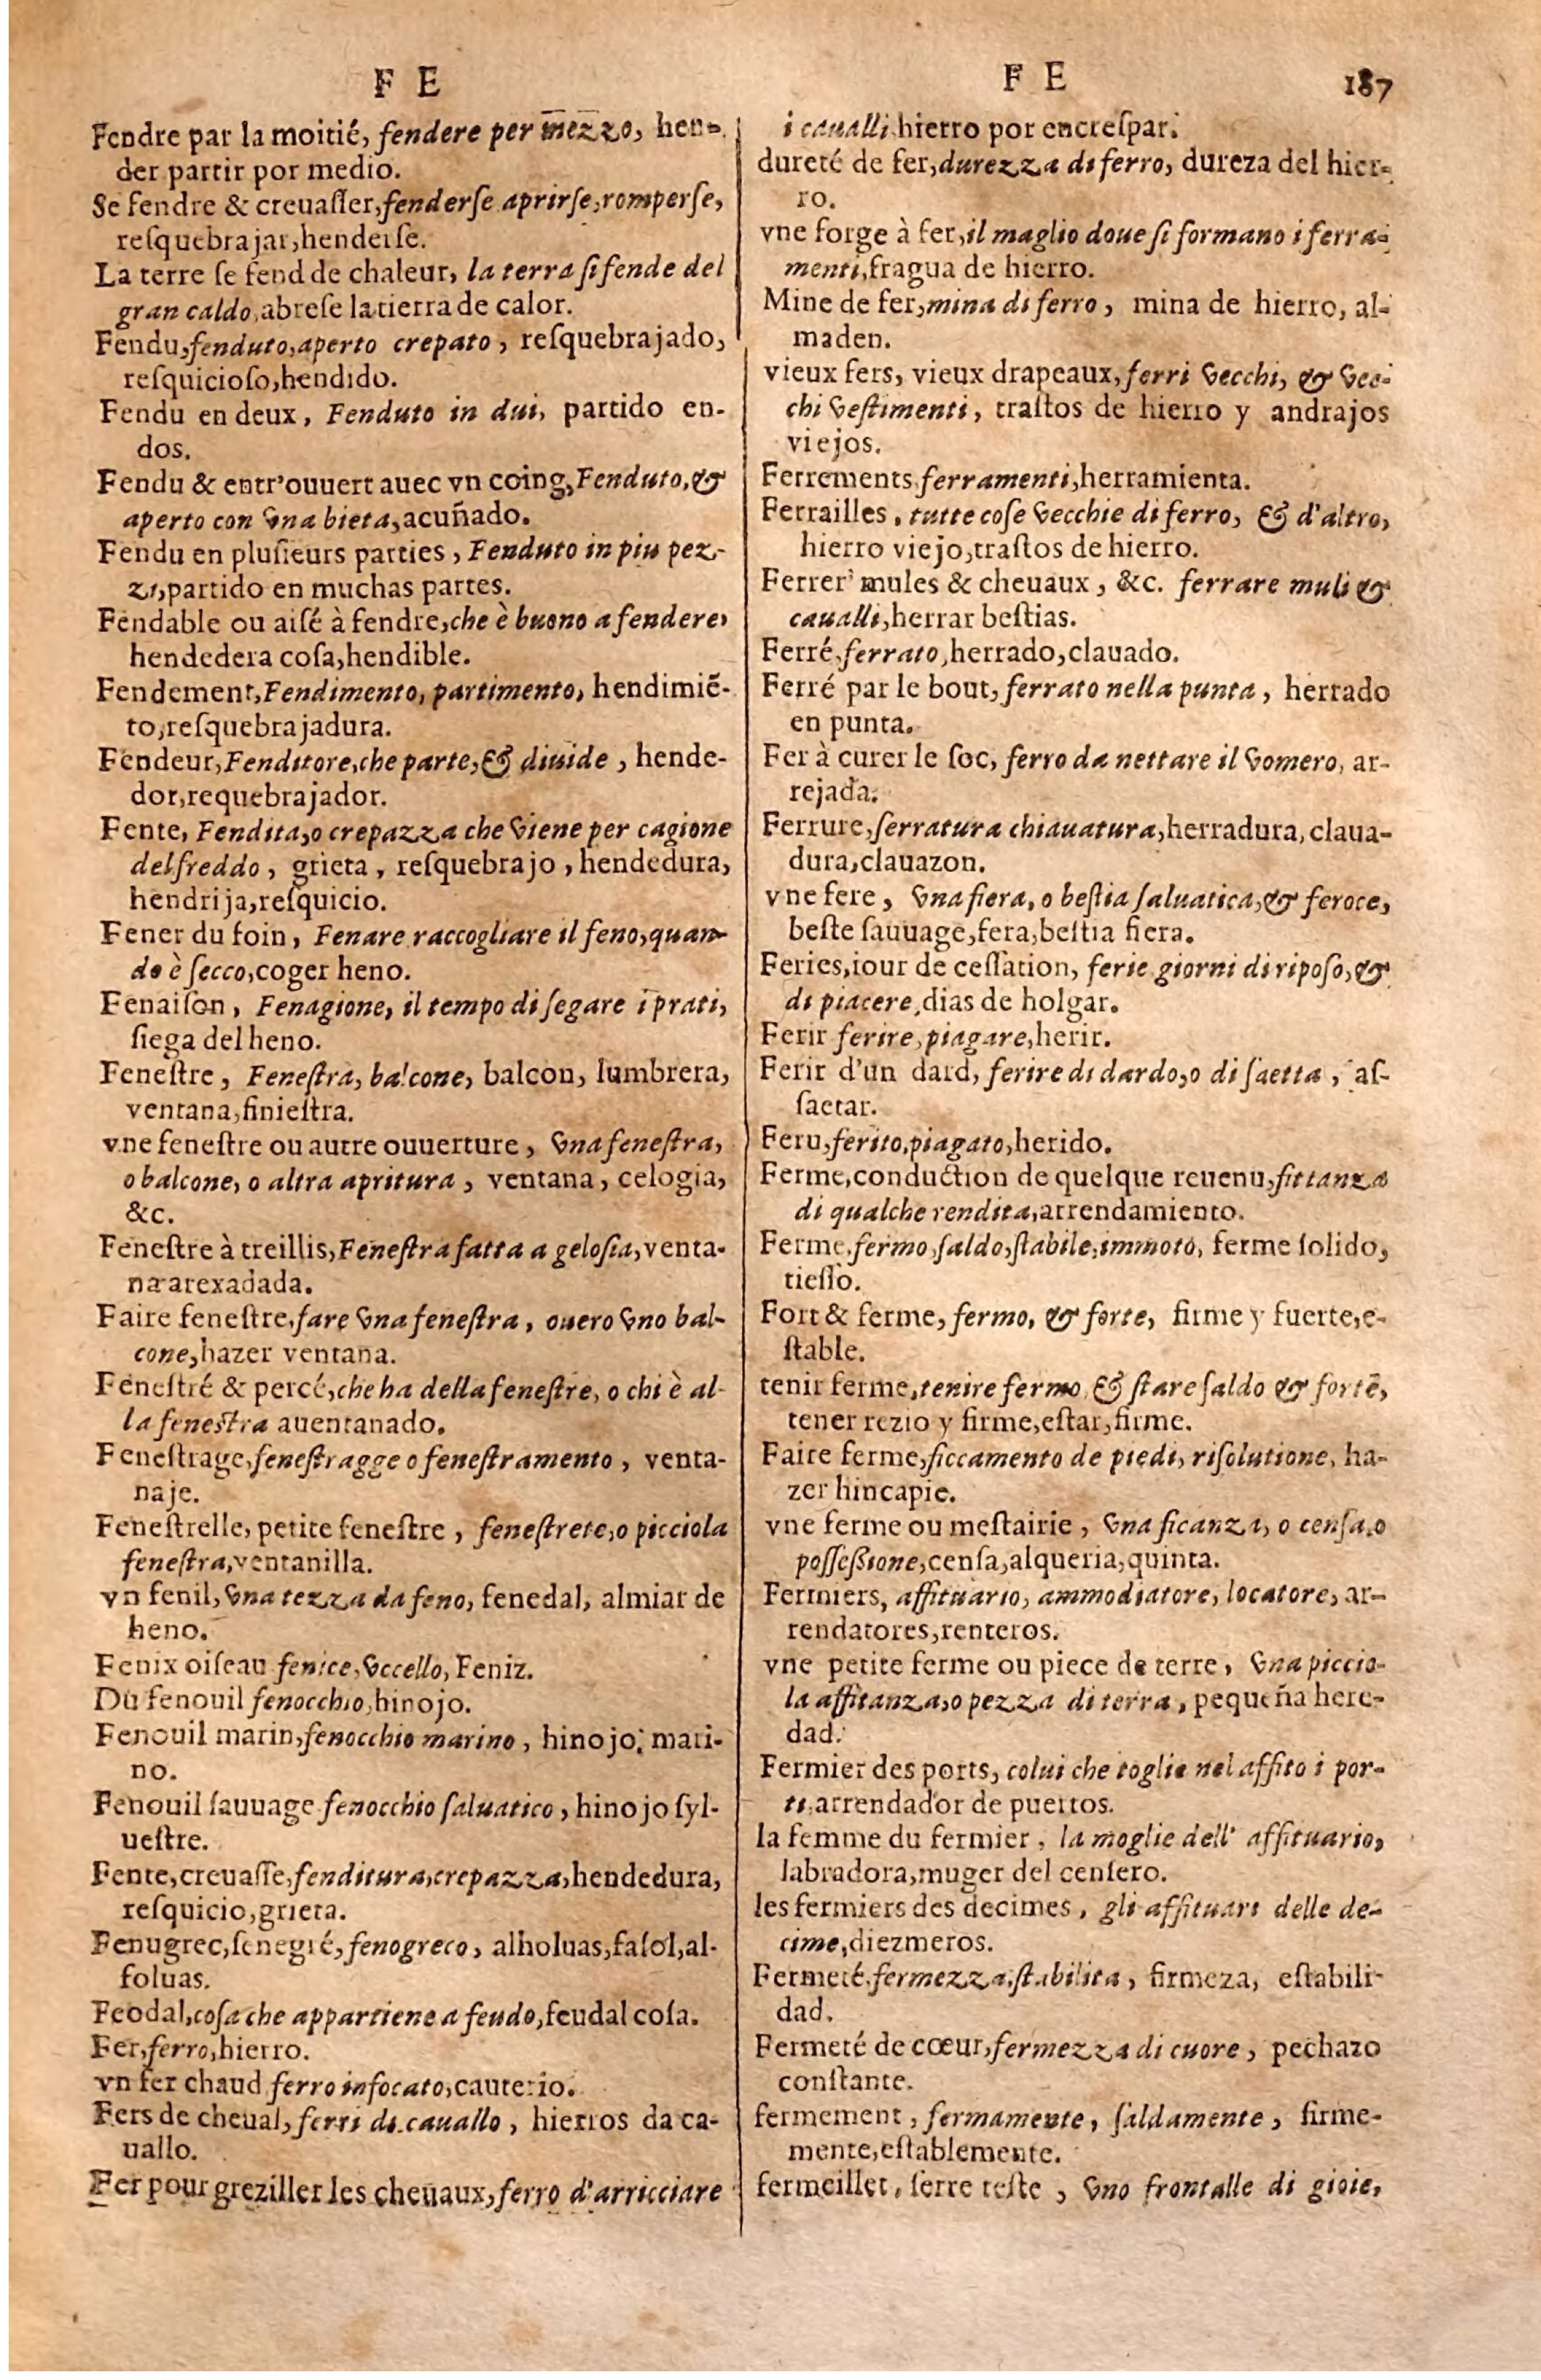 F E
Fendre par la moitié, fendere per mezzo, hen-
der partir por medio.
Se fendre & creuaſſer, fenderſe aprirſe, romperſe,
reſquebrajar, henderſe.
La terre ſe fend de chaleur, la terra ſi fende del
gran caldo, abreſe la tierra de calor.
Fendu, fenduto, aperto crepato, reſquebrajado,
reſquicioſo, hendido.
Fendu en deux, Fenduto in dui, partido en-
dos.
Fendu & entr'ouuert auec vn coing, Fenduto, &
aperto con vna bieta, acuñado.
Fendu en pluſieurs parties, Fenduto in piu pez-
zi, partido en muchas partes.
Fendable ou aiſé à fendre, che è buono a fendere,
hendedera coſa, hendible.
Fendement, Fendimento, partimento, hendimiẽ-
to, reſquebrajadura.
Fendeur, Fenditore, che parte, & diuide, hende-
dor, requebrajador.
Fente, Fendita, o crepazza che viene per cagione
del freddo, grieta, reſquebrajo, hendedura,
hendrija, reſquicio.
Fener du foin, Fenare raccogliare il feno, quan-
do è ſecco, coger heno.
Fenaiſon, Fenagione, il tempo di ſegare i prati,
ſiega del heno.
Feneſtre, Feneſtra, balcone, balcon, lumbrera,
ventana, finieſtra.
vne feneſtre ou autre ouuerture, vna feneſtra,
o balcone, o altra apritura, ventana, celogia,
&c.
Feneſtre à treillis, Feneſtra fatta a geloſia, venta-
na arexadada.
Faire feneſtre, fare vna feneſtra, ouero vno bal-
cone, hazer ventana.
Feneſtré & percé, che ha della feneſtre, o chi è al-
la feneſtra auentanado.
Feneſtrage, feneſtragge o feneſtramento, venta-
naje.
Feneſtrelle, petite feneſtre, feneſtrete, o picciola
feneſtra, ventanilla.
vn fenil, vna tezza da feno, fenedal, almiar de
heno.
Fenix oiſeau fenice, vccello, Feniz.
Du fenouil fenocchio, hinojo.
Fenouil marin, fenocchio marino, hinojo, mari-
no.
Fenouil ſauuage fenocchio ſaluatico, hinojo ſyl-
ueſtre.
Fente, creuaſſe, fenditura, crepazza, hendedura,
reſquicio, grieta.
Fenugrec, ſenegré, fenogreco, alholuas, faſol, al-
foluas.
Feodal, coſa che appartiene a feudo, feudal coſa.
Fer, ferro, hierro.
vn fer chaud ferro infocato, cauterio.
Fers de cheual, ferri di cauallo, hierros da ca-
uallo.
Fer pour greziller les cheuaux, ferro d'arricciare
F E 187
i caualli hierro por encreſpar.
dureté de fer, durezza di ferro, dureza del hier-
ro.
vne forge à fer, il maglio doue ſi formano i ferra-
menti, fragua de hierro.
Mine de fer, mina di ferro, mina de hierro, al-
maden.
vieux fers, vieux drapeaux, ferri vecchi, & vec-
chi veſtimenti, traſtos de hierro y andrajos
viejos.
Ferrements, ferramenti, herramienta.
Ferrailles, tutte coſe vecchie di ferro, & d'altro,
hierro viejo, traſtos de hierro.
Ferrer mules & cheuaux, &c. ferrare muli &
caualli, herrar beſtias.
Ferré, ferrato, herrado, clauado.
Ferré par le bout, ferrato nella punta, herrado
en punta.
Fer à curer le ſoc, ferro da nettare il vomero, ar-
rejada.
Ferrure, ſerratura chiauatura, herradura, claua-
dura, clauazon.
vne fere, vna fiera, o beſtia ſaluatica, & feroce,
beſte ſauuage, fera, beſtia fiera.
Feries, iour de ceſſation, ferie giorni di ripoſo, &
di piacere, dias de holgar.
Ferir ferire, piagare, herir.
Ferir d'un dard, ferire di dardo, o di ſaetta, aſ-
ſaetar.
Feru, ferito, piagato, herido.
Ferme, conduction de quelque reuenu, fittanza
di qualche rendita, arrendamiento.
Ferme, fermo, ſaldo, ſtabile, immoto, ferme ſolido,
tieſſo.
Fort & ferme, fermo, & forte, firme y fuerte, e-
ſtable.
tenir ferme, tenire fermo & ſtare ſaldo & forte,
tener rezio y firme, eſtar, firme.
Faire ferme, ficcamento de piedi, riſolutione, ha-
zer hincapie.
vne ferme ou meſtairie, vna ficanza, o cenſa, o
poſſeßione, cenſa, alqueria, quinta.
Fermiers, affituario, ammodiatore, locatore, ar-
rendatores, renteros.
vne petite ferme ou piece de terre, vna piccio-
la affitanza, o pezza di terra, pequeña here-
dad.
Fermier des ports, colui che toglie nel affito i por-
ti, arrendador de puertos.
la femme du fermier, la moglie dell' affituario,
labradora, muger del cenſero.
les fermiers des decimes, gli affituari delle de-
cime, diezmeros.
Fermeté, fermezza, ſtabilita, firmeza, eſtabili-
dad.
Fermeté de cœur, fermezza di cuore, pechazo
conſtante.
fermement, fermamente, ſaldamente, firme-
mente, eſtablemente.
fermeillet, ſerre teſte, vno frontalle di gioie,